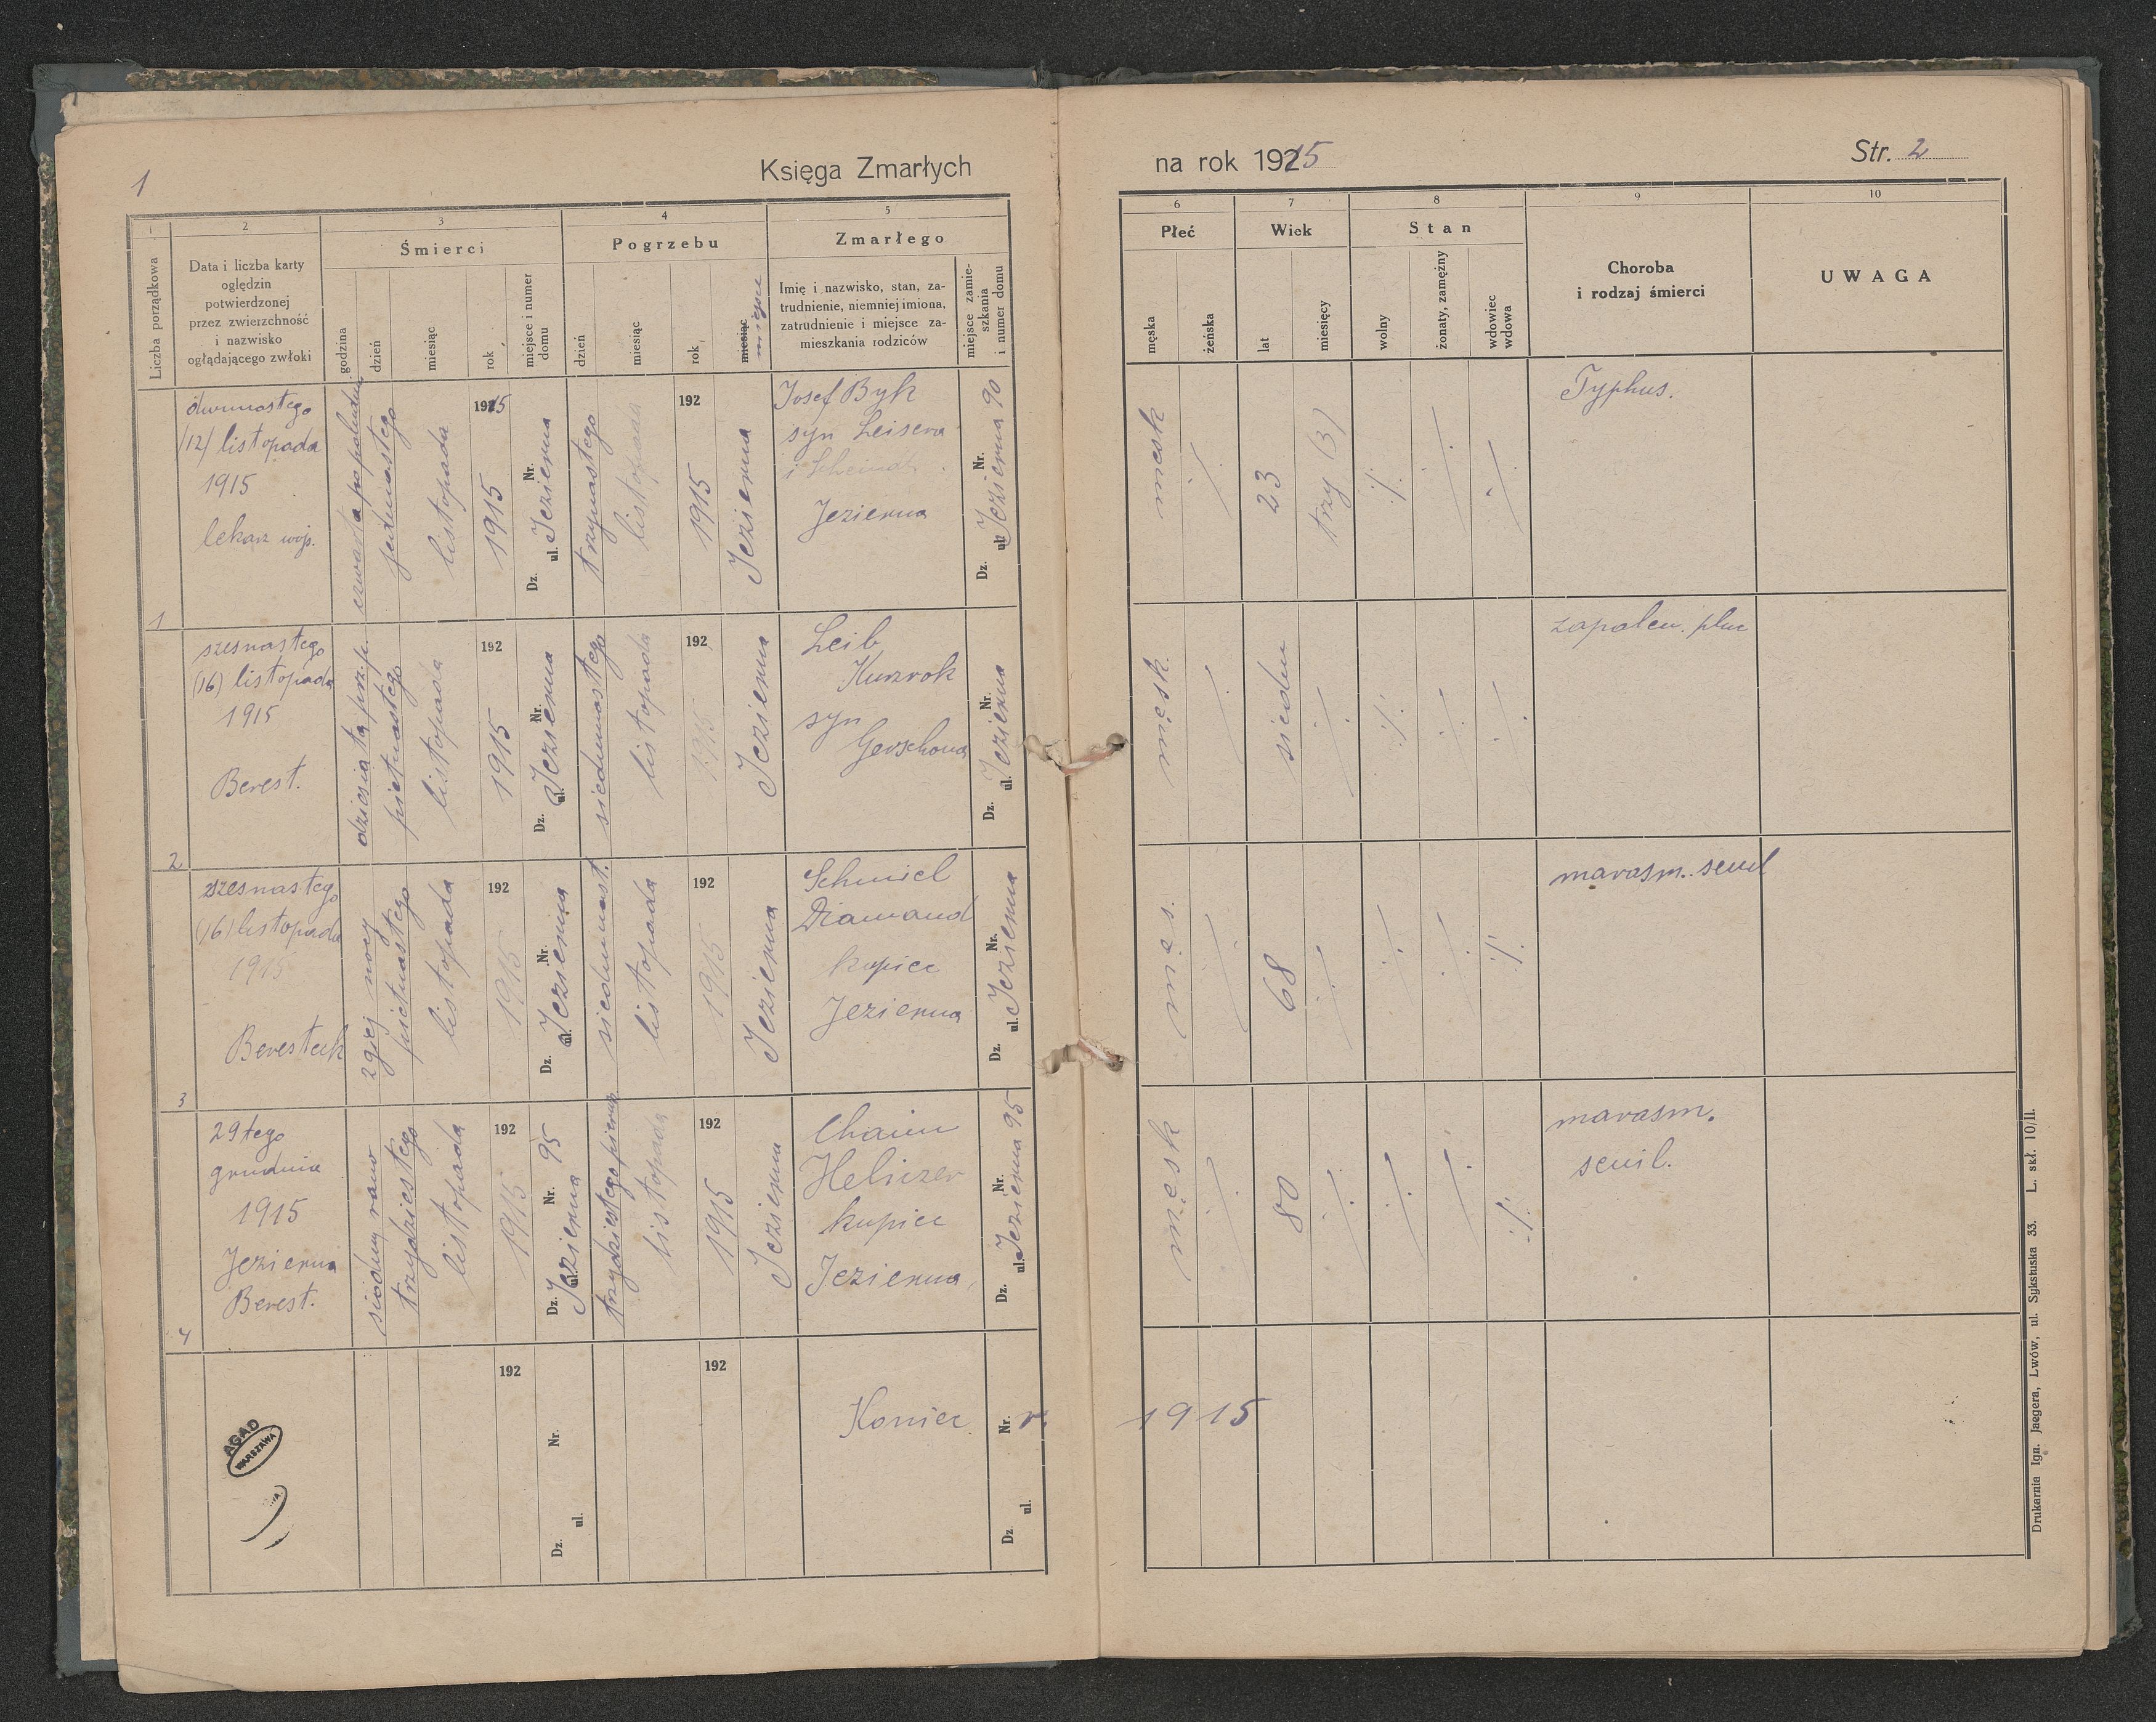 1
Księga Zmarłych
na rok 1915
Str. 2
1
2
3
4
5
6
7
8
9
10
Liczba porządkowa
Data i liczba karty
oględzin
potwierdzonej
przez zwierzchność
i nazwisko
oglądającego zwłoki
Śmierci
godzina
dzień
miesiąc
rok
miejsce i numer
domu
Pogrzebu
dzień
miesiąc
rok
miesiąc
miejsce
Zmarłego
Imię i nazwisko, stan, za-
trudnienie, niemniej imiona,
zatrudnienie i miejsce za-
mieszkania rodziców
miejsce zamie-
szkania
i numer domu
Płeć
męska
żeńska
Wiek
lat
miesięcy
Stan
wolny
żonaty, zamężny
wdowiec
wdowa
Choroba
i rodzaj śmierci
UWAGA
1
dwunastego
/12/ listopada
1915
lekarz wojs.
czwarta popołudniu
jedenastego
listopada
1915
1915
Dz. ul. Nr.
Jezierna
trzynastego
listopada
192
1915
Jezierna
Josef Byk
syn Leisera
i
Jezierna
Dz. ul. Nr.
Jezierna 90
męsk
23
trzy (3)
Typhus.
2
szesnastego
(16) listopada
1915
Berest.
dziesiąta prz.p.
pietnastego
listopada
192
1915
Dz. ul. Nr.
Jezierna
siedemnastego
listopada
192
1915
Jezierna
Leib
Kurzrok
syn
Gerschona
Dz. ul. Nr.
Jezierna
męsk
siedm
zapalen. płuc
3
szesnastego
(16) listopada
1915
Beresteck
2giej nocy
pietnastego
listopada
192
1915
Dz. ul. Nr.
Jezierna
siedemnast.
listopada
192
1915
Jezierna
Schmiel
Diamand
kupiec
Jezierna
Dz. ul. Nr.
Jezierna
męs.
68
marasm. senil
4
29tego
grudnia
1915
Jezierna
Berest.
siodmy rano
trzydziestego
listopada
192
1915
Dz. ul. Nr.
Jezierna 95
trzydziestego pierwsz
listopada
192
1915
Jezierna
Chaim
Heliczer
kupiec
Jezierna
Dz. ul. Nr.
Jezierna 95
męsk
80
marasm.
senil.
192
Dz. ul. Nr.
192
Koniec
Dz. ul. Nr.
r. 1915
AGAD
WARSZAWA
Drukarnia Ign. Jaegera, Lwów, ul. Sykstuska 33. L. skł. 10/II.